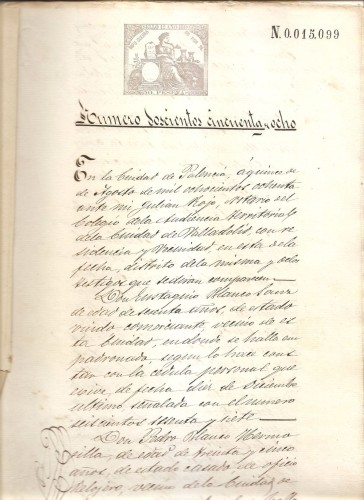 N.0.015.099
Numero doscientos cincuenta y ocho
En la Ciudad de Palencia, á quince de
de Agosto de mil ochocientos ochenta
ante mi Julian Rojo, Notario del
Colegio de la Audiencia territorial
de la Ciudad de Valladolid, con re
sidencia y vecindad, en esta de la
fecha, distrito de la misma y de los
testigos que se dirán comparecen
Don Eustaquio Blanco Sanz
de edad de sesenta años, de estado
viudo comerciante, vecino de es
ta Ciudad, en donde se halla em
padronado, segun lo hace cons
tar con la cédula personal que
exive, de fecha diez de Diciembre
ultimo señalada con el numero
seiscientos sesenta y siete
Don Pedro Blanco Hermo
silla, de edad de treinta y cinco
años, de estado casado, de oficio
Relojero, vecino de la Ciudad de